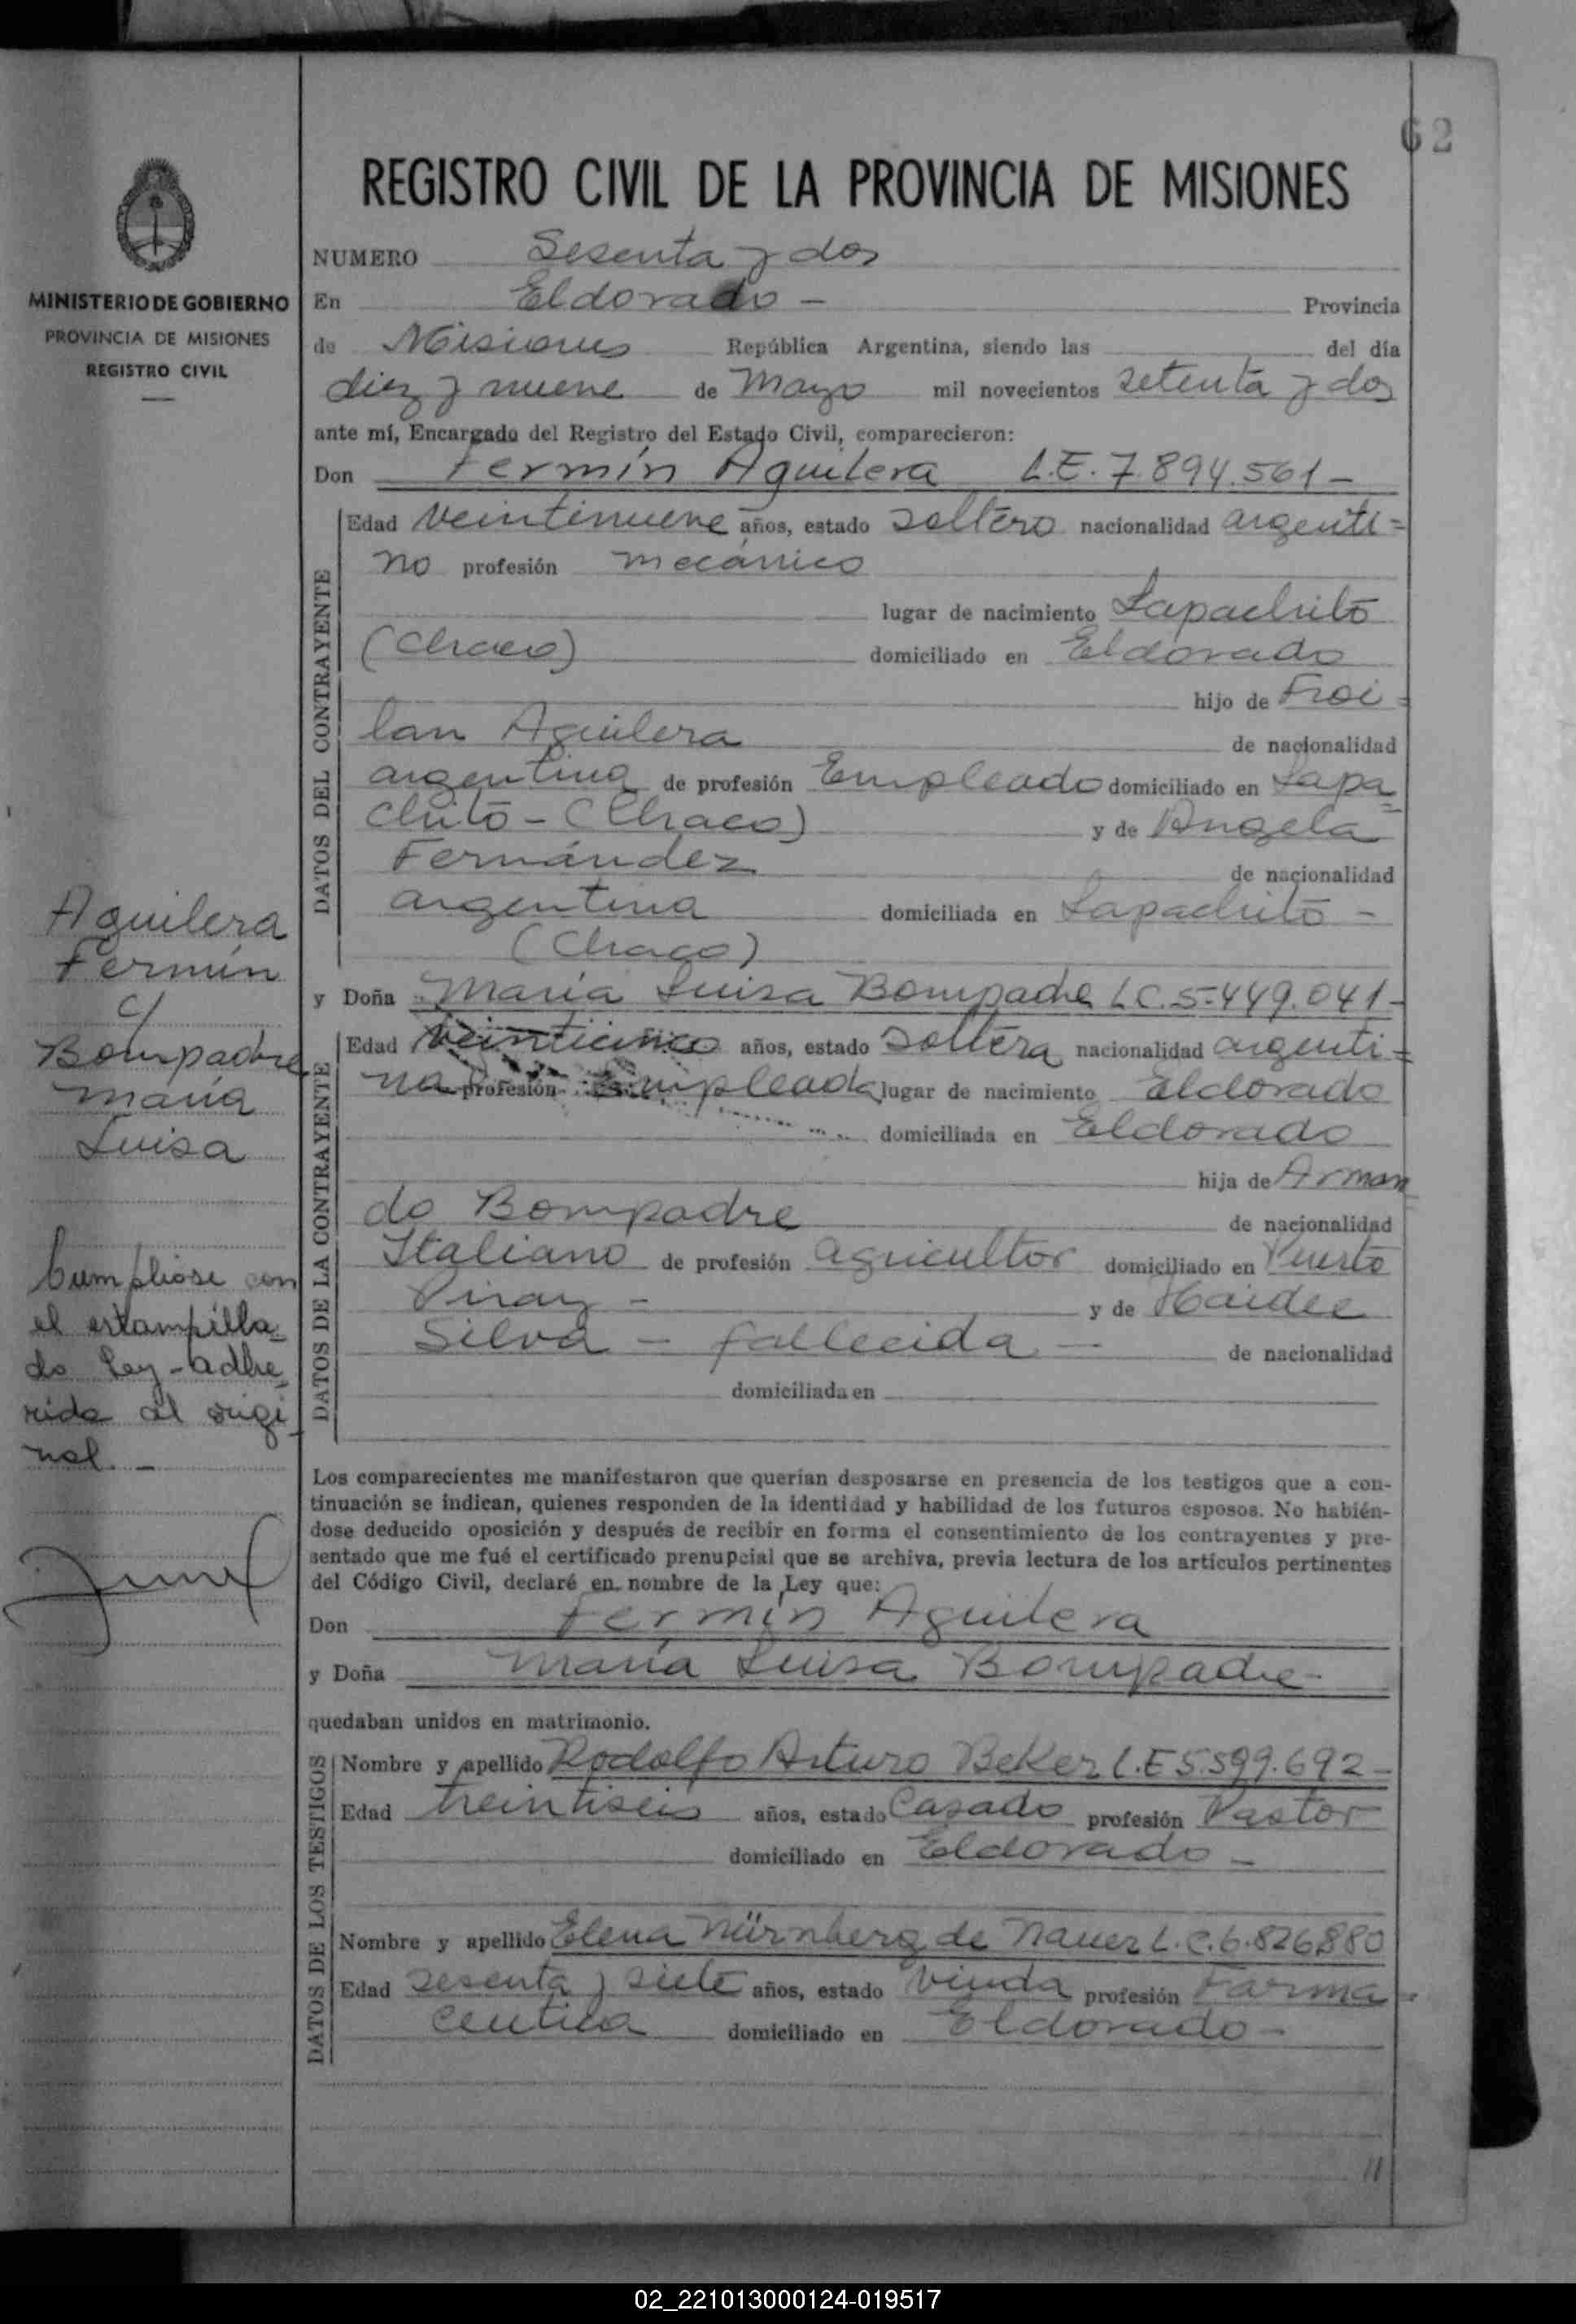 62
REGISTRO CIVIL DE LA PROVINCIA DE MISIONES
MINISTERIO DE GOBIERNO
PROVINCIA DE MISIONES
REGISTRO CIVIL
NUMERO Sesenta y dos
En Eldorado - Provincia
de Misiones República Argentina, siendo las del día
diez y nueve de Mayo mil novecientos setenta y dos
ante mí, Encargado del Registro del Estado Civil, comparecieron:
Don Fermín Aguilera L.E. 7.894.561 -
DATOS DEL CONTRAYENTE
Edad Veintinueve años, estado Soltero nacionalidad argenti=
no profesión mecánico
lugar de nacimiento Lapachito
(Chaco) domiciliado en Eldorado
hijo de Froi=
lan Aguilera de nacionalidad
argentina de profesión Empleado domiciliado en Lapa=
chito - (Chaco) y de Angela
Fernández de nacionalidad
argentina domiciliada en Lapachito -
(Chaco)
y Doña María Luisa Bompadre L.C. 5.449.041-
DATOS DE LA CONTRAYENTE
Edad Veinticinco años, estado Soltera nacionalidad argenti=
na profesión Empleada lugar de nacimiento Eldorado
domiciliada en Eldorado
hija de Arman
do Bompadre de nacionalidad
Italiano de profesión agricultor domiciliado en Puerto
Piray - y de Haidee
Silva - fallecida - de nacionalidad
domiciliada en
Aguilera
Fermín
c/
Bompadre
María
Luisa
Cumpliose con
el estampilla=
do Ley - adhe=
rida al origi
nal. -
Los comparecientes me manifestaron que querían desposarse en presencia de los testigos que a con-
tinuación se indican, quienes responden de la identidad y habilidad de los futuros esposos. No habién-
dose deducido oposición y después de recibir en forma el consentimiento de los contrayentes y pre-
sentado que me fué el certificado prenupcial que se archiva, previa lectura de los artículos pertinentes
del Código Civil, declaré en nombre de la Ley que:
Don Fermín Aguilera
y Doña María Luisa Bompadre -
quedaban unidos en matrimonio.
DATOS DE LOS TESTIGOS
Nombre y apellido Rodolfo Arturo Beker L.E 5.599.692 -
Edad treintiseis años, estado Casado profesión Pastor
domiciliado en Eldorado -
Nombre y apellido Elena Nürnberg de Nauer L.C. 6.826.880
Edad Sesenta y siete años, estado Viuda profesión Farma=
ceutica domiciliado en Eldorado -
11
02_221013000124-019517